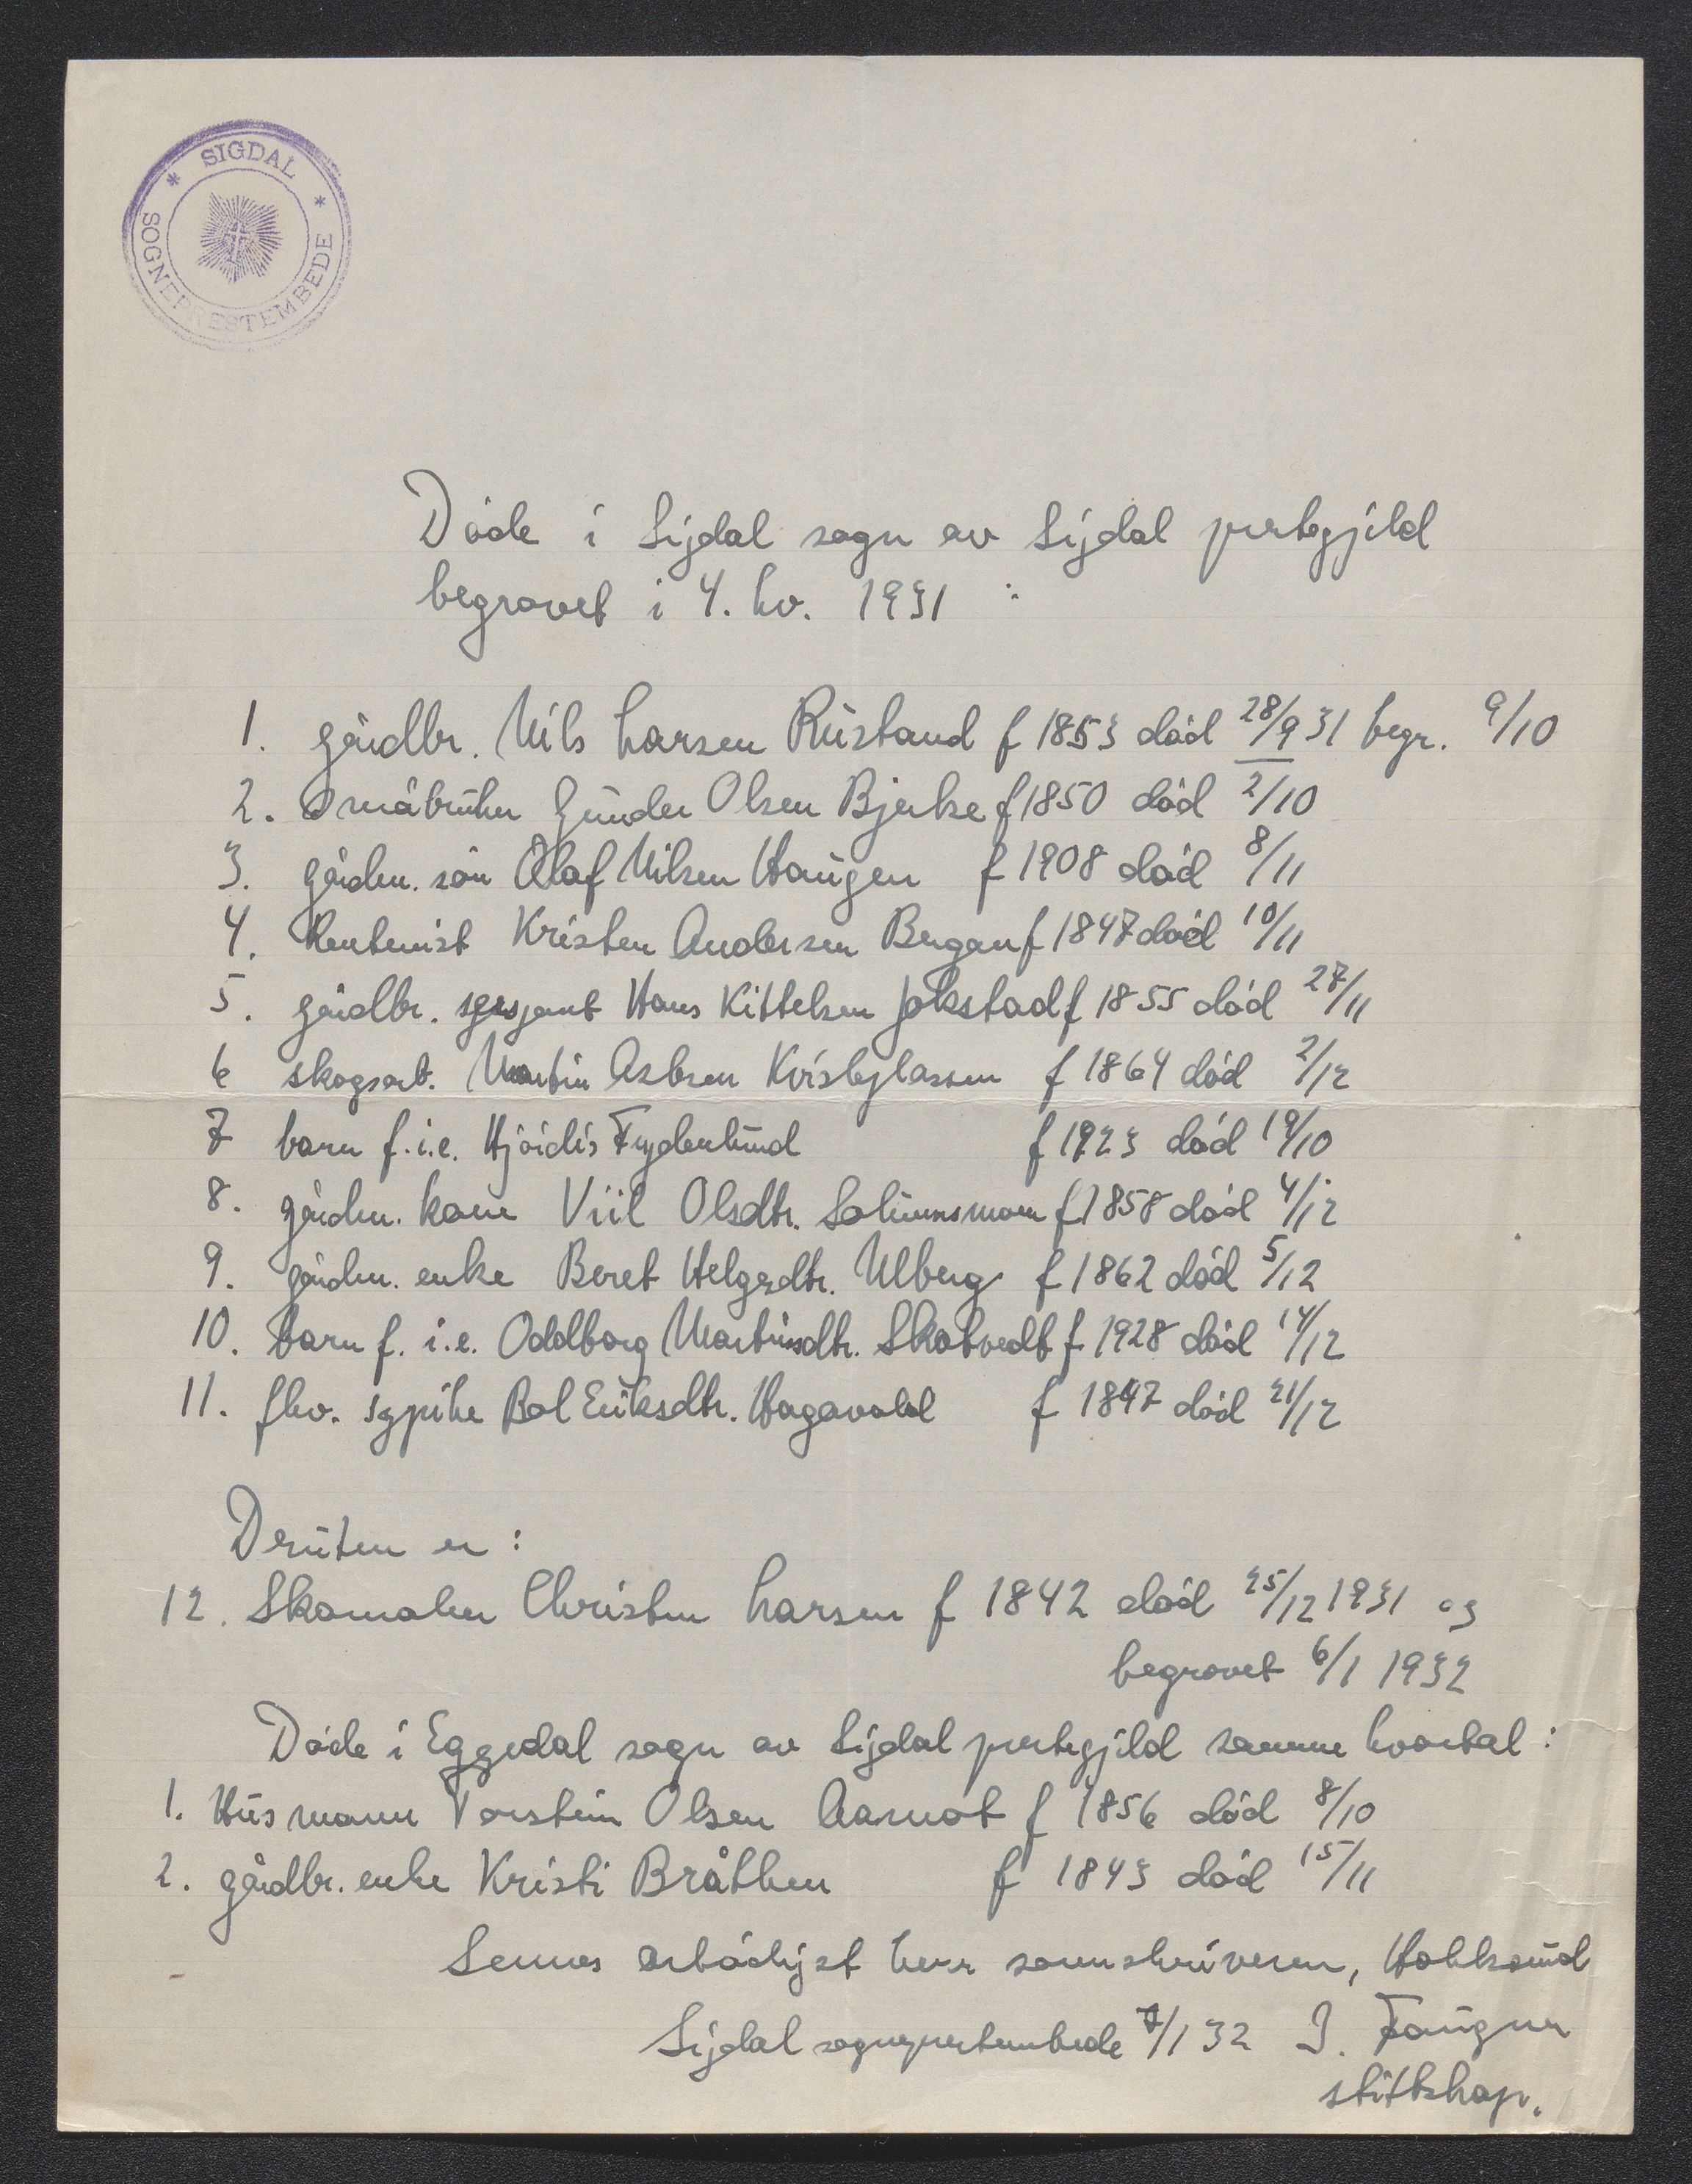 SIGDAL
SOGNEPRESTEMBEDE
Døde i Sigdal sogn av Sigdal prestegjeld
begravet i 4. kv. 1931 :
1. gårdbr. Nils Larsen Rustand f 1853 død 28/9 31 begr. 9/10
2. Småbruker Gunder Olsen Bjerke f 1850 død 2/10
3. gårdm. søn Olaf Nilsen Haugen f 1908 død 8/11
4. Rentenist Kristen Andersen Bergan f 1847 død 10/11
5. gårdbr. sersjant Hans Kittelsen Jokstad f 1855 død 27/11
6 skogsarb. Martin Asbsen f 1864 død 2/12
7 barn f.i.e. Hjördis Frydenlund f 1923 død 19/10
8. gårdm. kone Viil Olsdtr. f 1858 død 4/12
9. gårdm. enke Beret Helgesdtr. Ulberg f 1862 død 5/12
10. barn f. i.e. Oddborg Martinsdtr. Skatvedt f 1928 død 14/12
11. fhv. sypike Bol Eriksdtr. Hagavold f 1847 død 21/12
Druten er :
12. Skomaker Christen Larsen f 1842 død 25/12 1931 og
begravet 6/1 1932
Døde i Eggedal sogn av Sigdal prestegjeld samme kvartal :
1. Husmann Torstein Olsen Aamot f 1856 død 8/10
2. gårdbr. enke Kristi Bråthen f 1843 død 15/11
Sennes ærbødigst herr sorenskriveren, Hokksund
Sigdal sogneprestembede 7/1 32 J. Faugner
stiftskap.